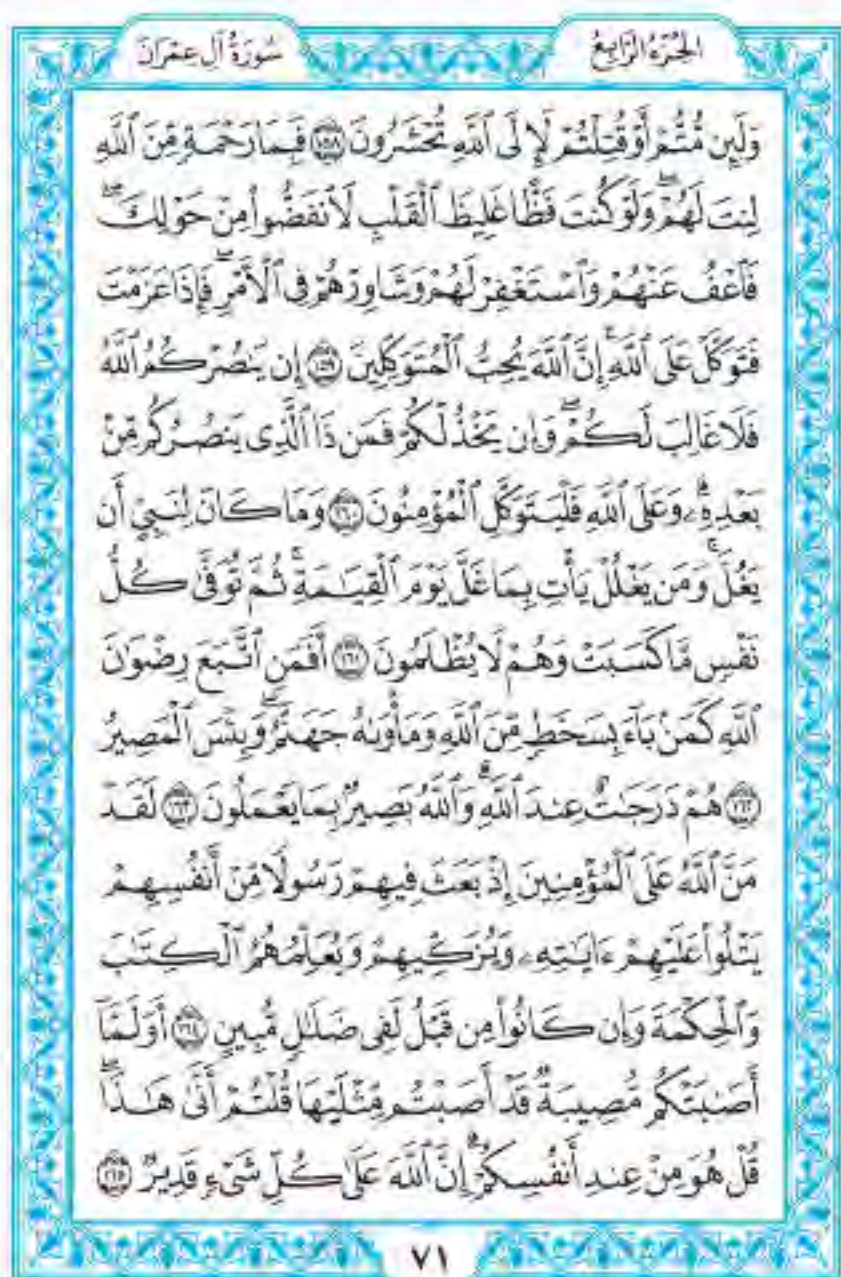 الجزء الرابع
سورة آل عمران
وَلَئِن مُّتُّمْ أَوْ قُتِلْتُمْ لَإِلَى ٱللَّهِ تُحْشَرُونَ ١٥٨ فَبِمَا رَحْمَةٍ مِّنَ ٱللَّهِ
لِنتَ لَهُمْ ۖ وَلَوْ كُنتَ فَظًّا غَلِيظَ ٱلْقَلْبِ لَٱنفَضُّوا۟ مِنْ حَوْلِكَ ۖ
فَٱعْفُ عَنْهُمْ وَٱسْتَغْفِرْ لَهُمْ وَشَاوِرْهُمْ فِى ٱلْأَمْرِ ۖ فَإِذَا عَزَمْتَ
فَتَوَكَّلْ عَلَى ٱللَّهِ ۚ إِنَّ ٱللَّهَ يُحِبُّ ٱلْمُتَوَكِّلِينَ ١٥٩ إِن يَنصُرْكُمُ ٱللَّهُ
فَلَا غَالِبَ لَكُمْ ۖ وَإِن يَخْذُلْكُمْ فَمَن ذَا ٱلَّذِى يَنصُرُكُم مِّنۢ
بَعْدِهِۦ ۗ وَعَلَى ٱللَّهِ فَلْيَتَوَكَّلِ ٱلْمُؤْمِنُونَ ١٦٠ وَمَا كَانَ لِنَبِىٍّ أَن
يَغُلَّ ۚ وَمَن يَغْلُلْ يَأْتِ بِمَا غَلَّ يَوْمَ ٱلْقِيَـٰمَةِ ۚ ثُمَّ تُوَفَّىٰ كُلُّ
نَفْسٍ مَّا كَسَبَتْ وَهُمْ لَا يُظْلَمُونَ ١٦١ أَفَمَنِ ٱتَّبَعَ رِضْوَٰنَ
ٱللَّهِ كَمَنۢ بَآءَ بِسَخَطٍ مِّنَ ٱللَّهِ وَمَأْوَىٰهُ جَهَنَّمُ ۚ وَبِئْسَ ٱلْمَصِيرُ
١٦٢ هُمْ دَرَجَـٰتٌ عِندَ ٱللَّهِ ۗ وَٱللَّهُ بَصِيرٌۢ بِمَا يَعْمَلُونَ ١٦٣ لَقَدْ
مَنَّ ٱللَّهُ عَلَى ٱلْمُؤْمِنِينَ إِذْ بَعَثَ فِيهِمْ رَسُولًا مِّنْ أَنفُسِهِمْ
يَتْلُوا۟ عَلَيْهِمْ ءَايَـٰتِهِۦ وَيُزَكِّيهِمْ وَيُعَلِّمُهُمُ ٱلْكِتَـٰبَ
وَٱلْحِكْمَةَ وَإِن كَانُوا۟ مِن قَبْلُ لَفِى ضَلَـٰلٍ مُّبِينٍ ١٦٤ أَوَلَمَّآ
أَصَـٰبَتْكُم مُّصِيبَةٌ قَدْ أَصَبْتُم مِّثْلَيْهَا قُلْتُمْ أَنَّىٰ هَـٰذَا ۖ
قُلْ هُوَ مِنْ عِندِ أَنفُسِكُمْ ۗ إِنَّ ٱللَّهَ عَلَىٰ كُلِّ شَىْءٍ قَدِيرٌ ١٦٥
٧١